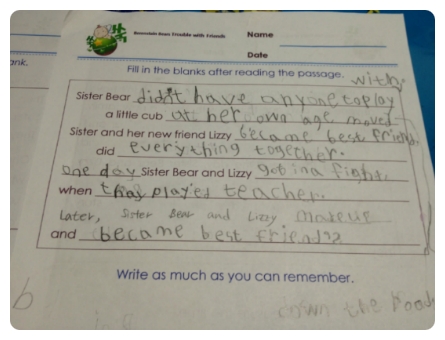 Berenstain Bears Trouble with Friends
Name
Date
ank.
Fill in the blanks after reading the passage.
with
Sister Bear didn't have anyone to play
a little cub at her own age moved
Sister and her new friend Lizzy became best friends
did everything together.
one day Sister Bear and Lizzy got in a fight.
when they played teacher.
Later, Sister Bear and Lizzy makeup
and became best friends
Write as much as you can remember.
b
down the Road